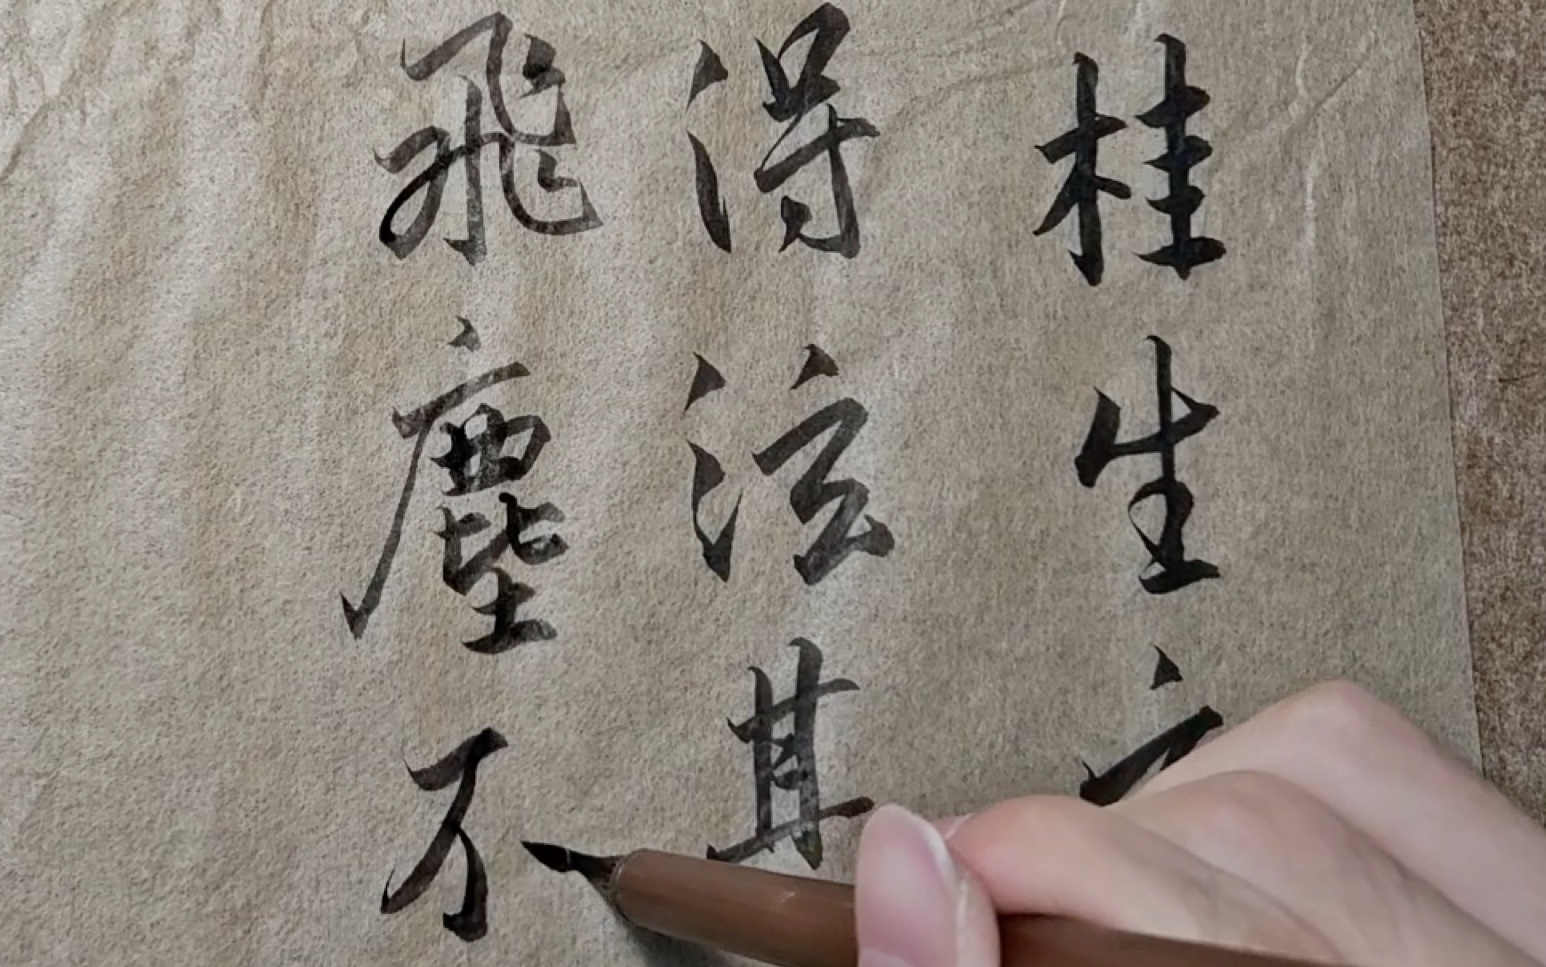 桂生
得泫其
飛塵不